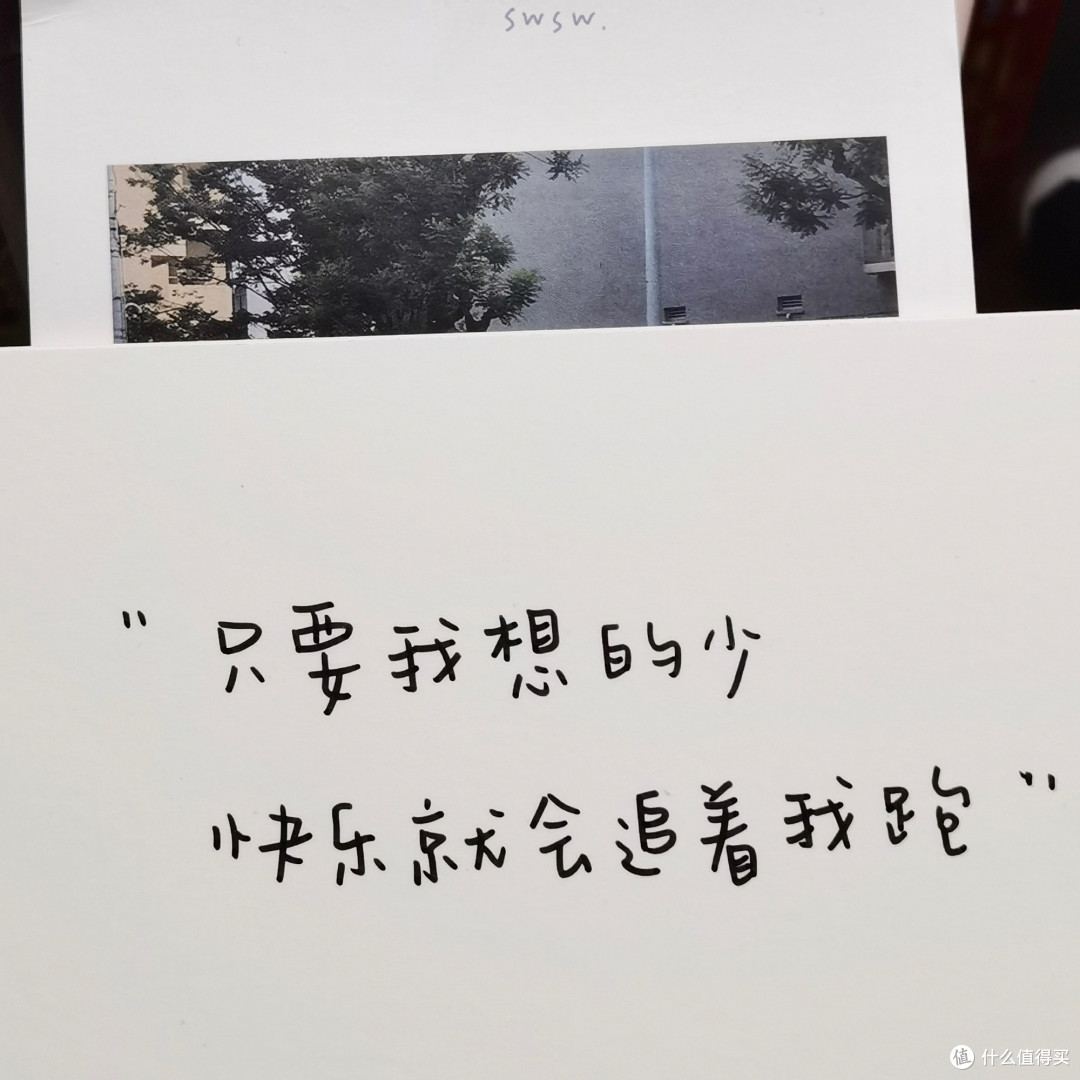 swsw.
"只要我想的少
快乐就会追着我跑"
值 什么值得买